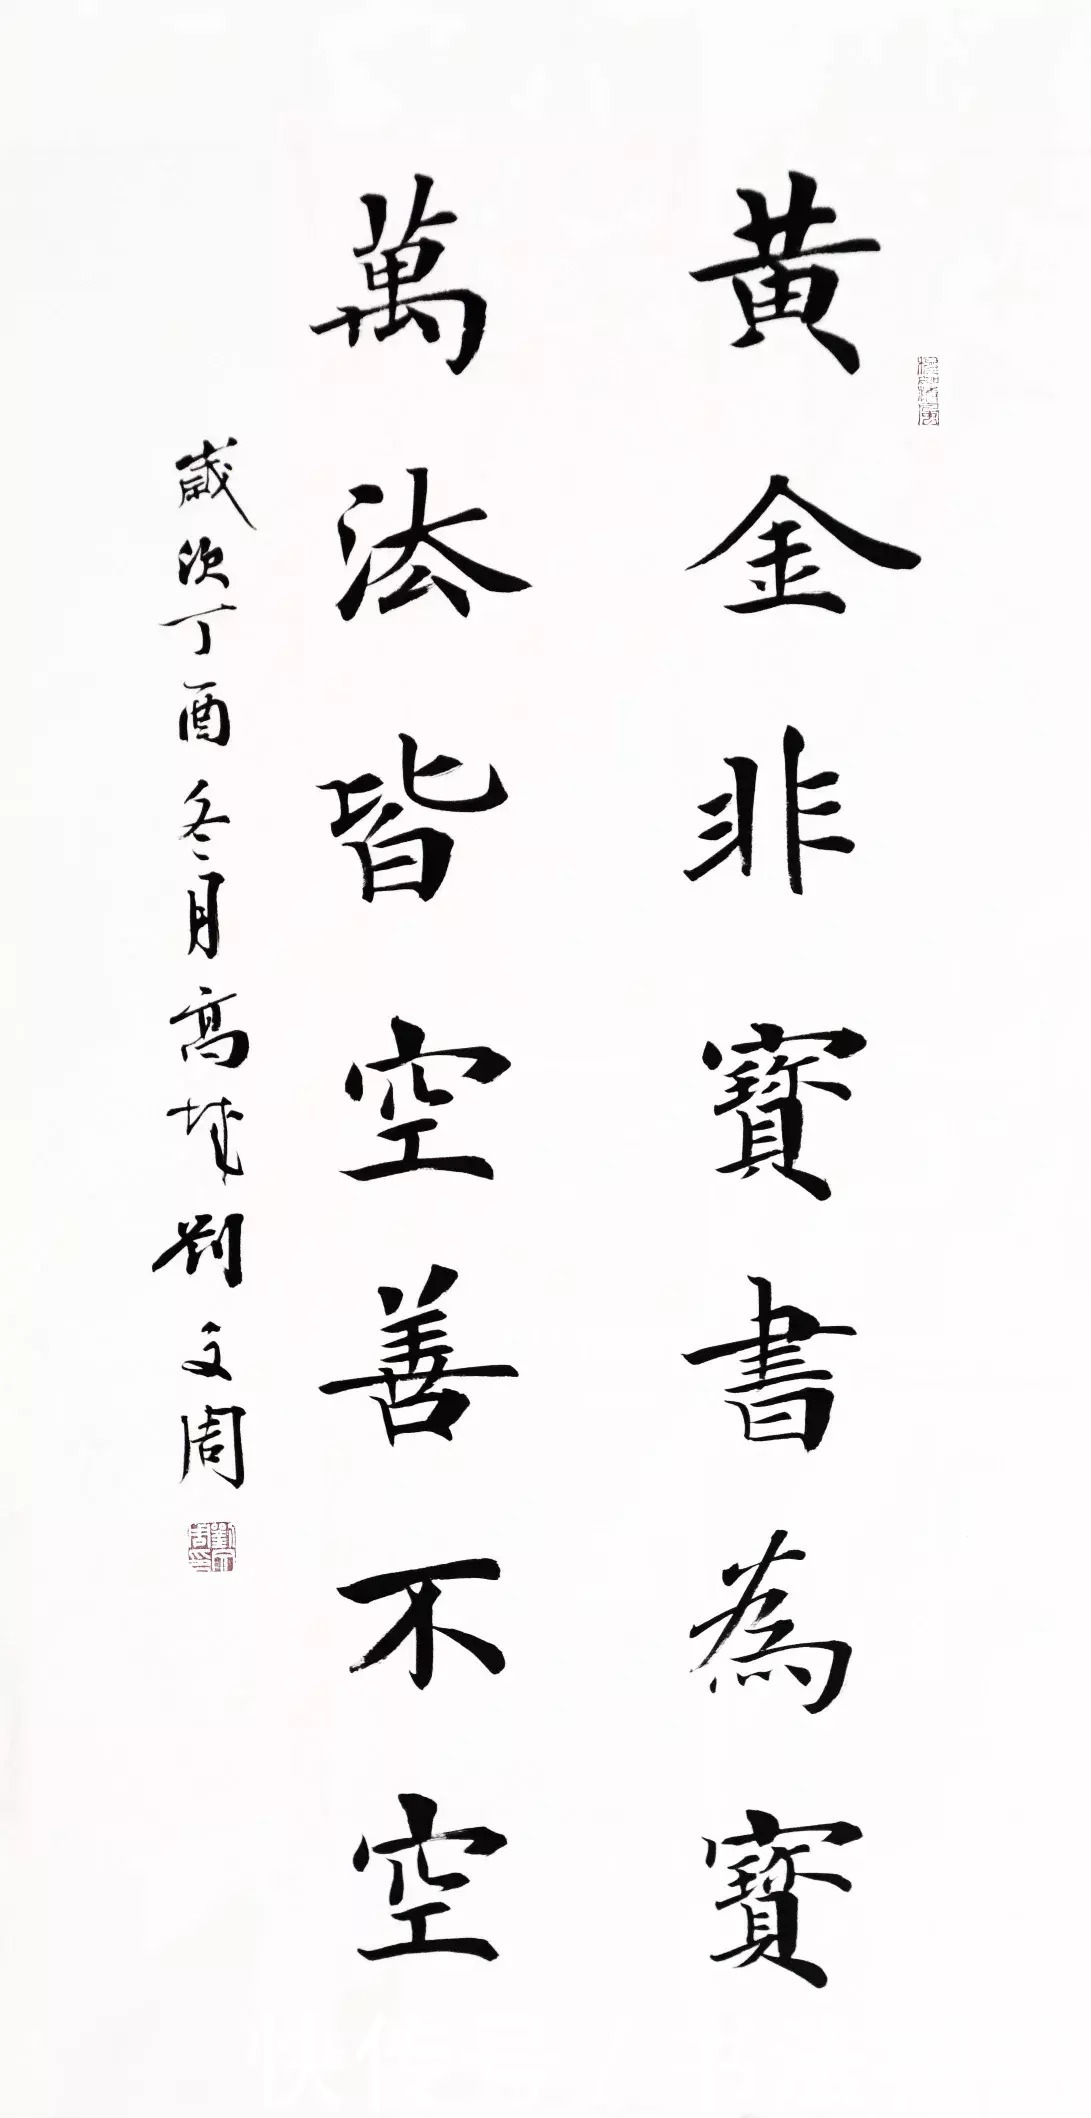 黄金非寳書為寳
萬法皆空善不空
歲次丁酉冬月高城劉文周